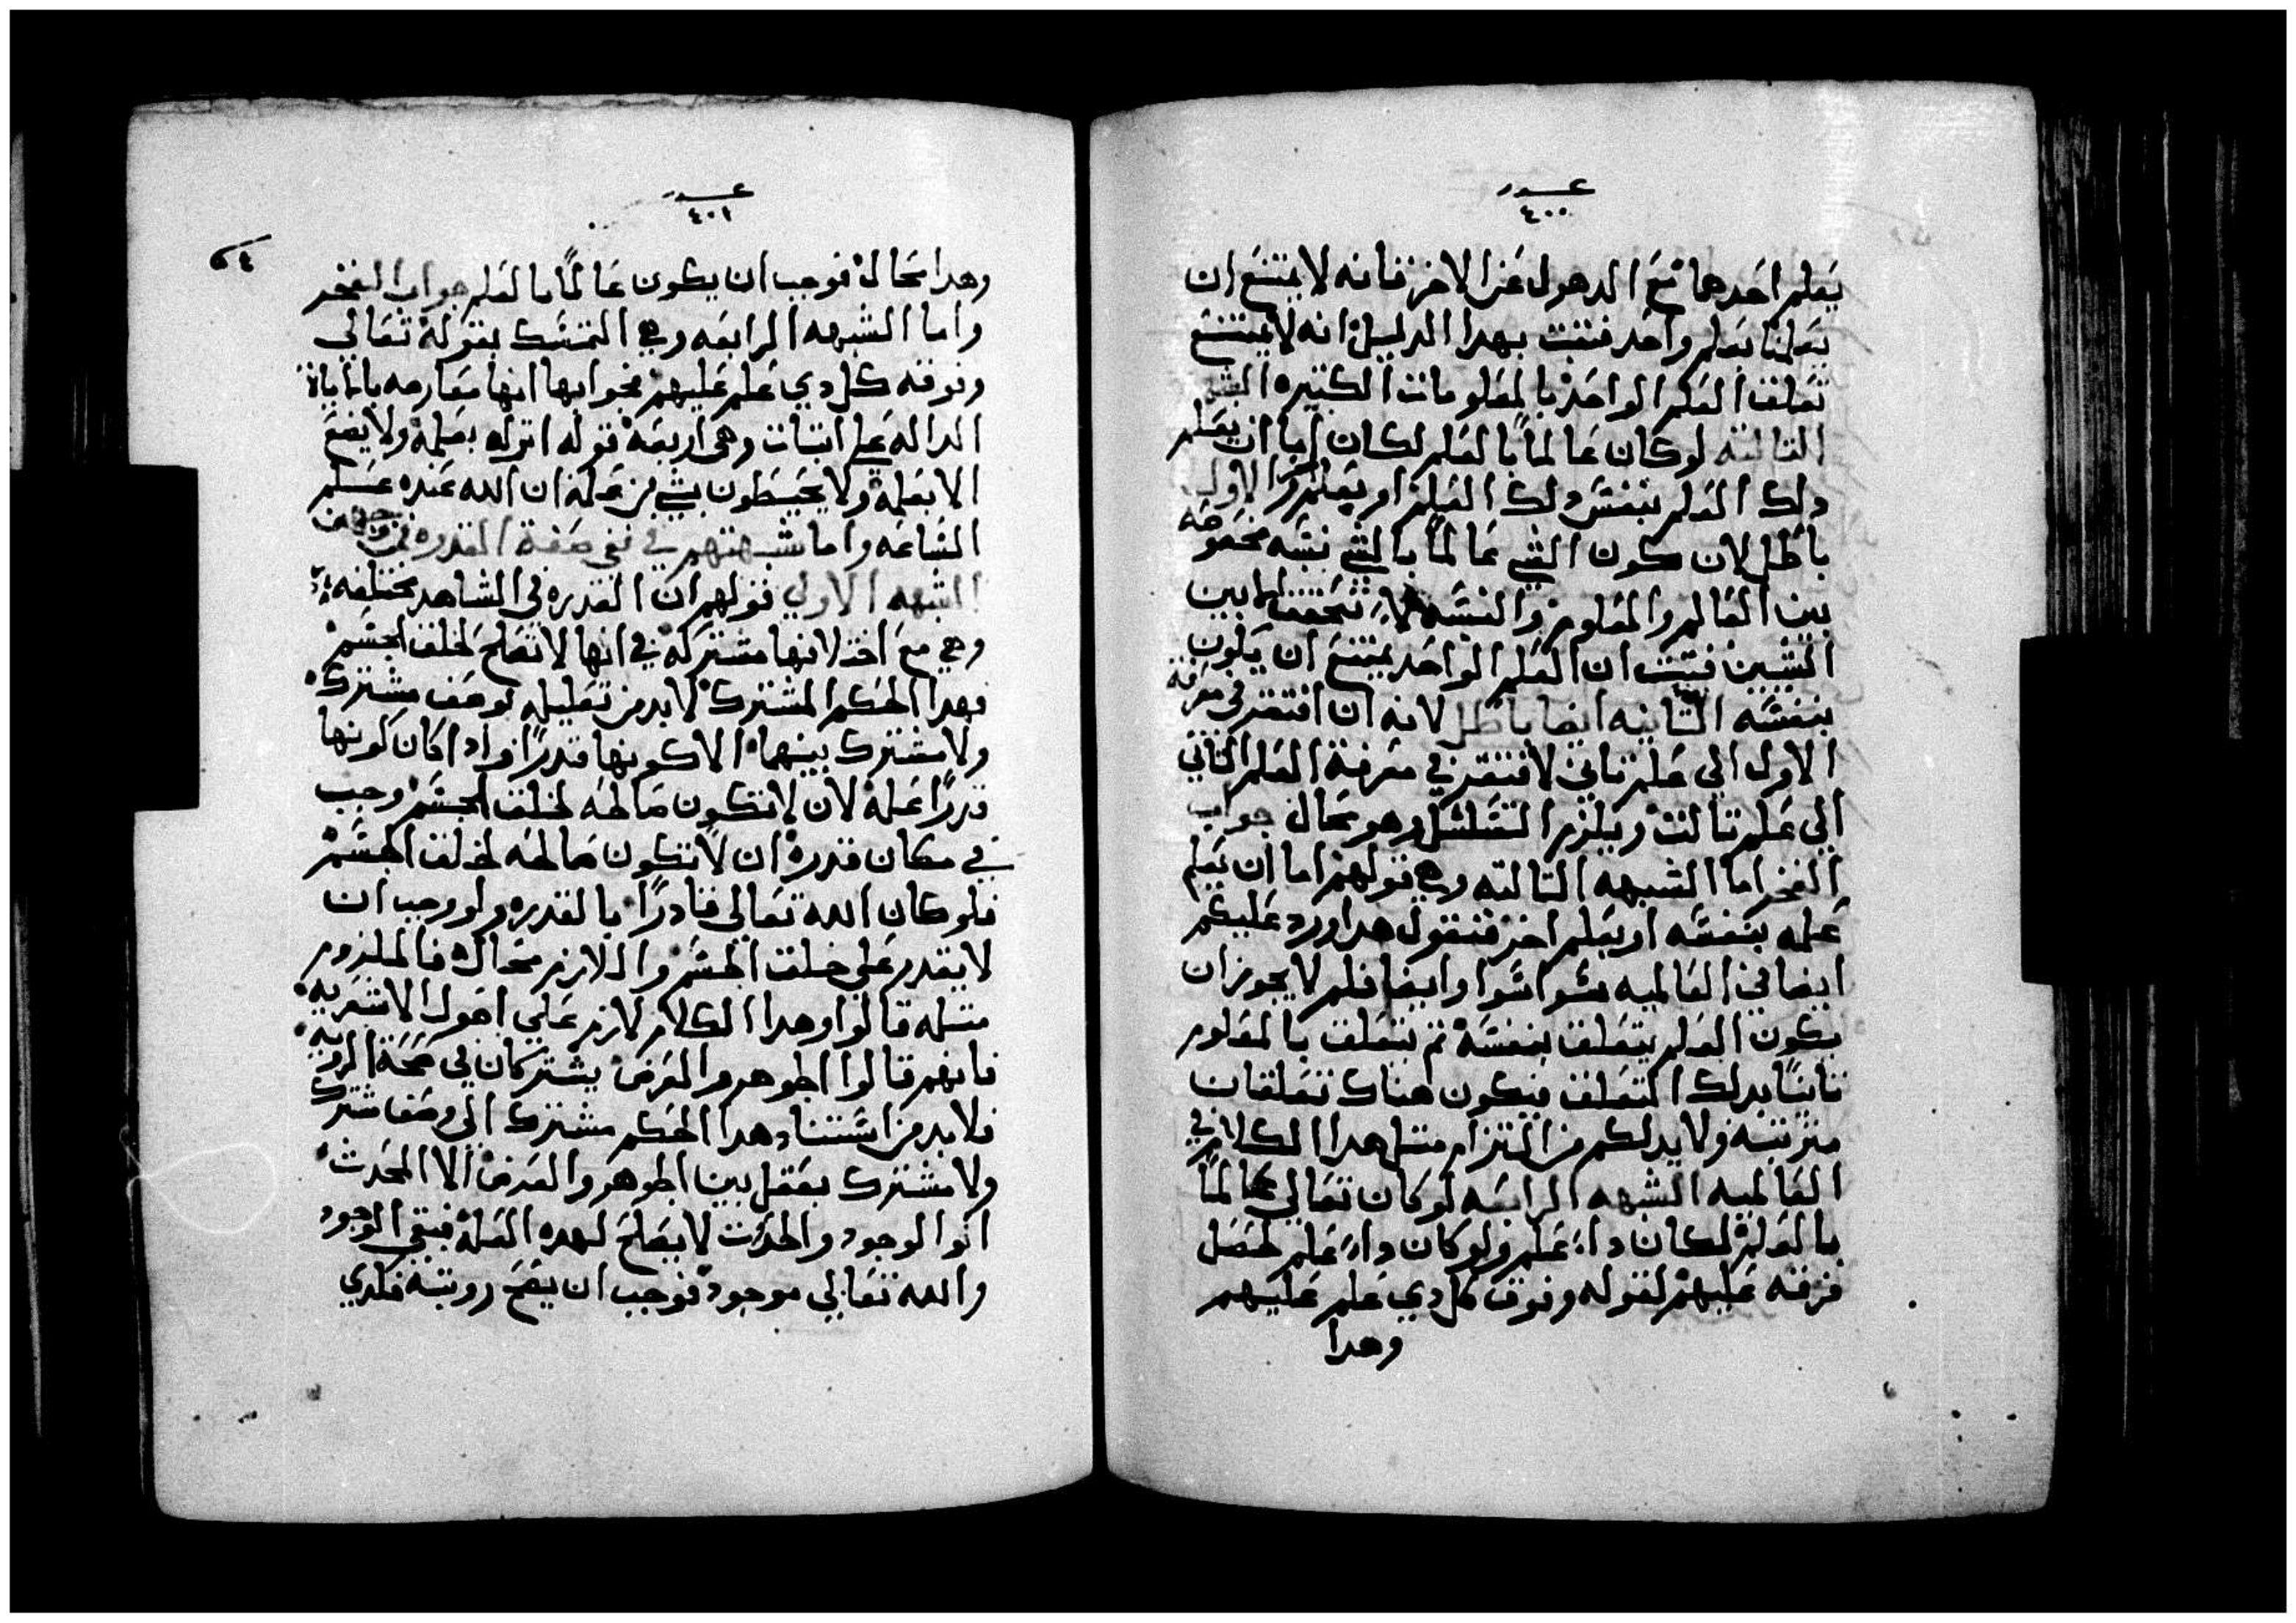 عدد
٤٠٠
يعلم احدهما مع الدهول عن الاخر فانه لا يمتنع ان
يعلمنا بعلم واحد فثبت بهدا الدليل انه لا يمتنع
تعلق العلم الواحد بالمعلومات الكتيره الشبهه
التالته لو كان عالماً بالعلم لكان اما ان يعلم
دلك العلم بنفس دلك العلم او بعلم اخر الاول
باطل لان كون الشي عالماً بالشي نسبه مخصوصه
بين العالم والمعلوم والنسبه لا تتحقق الا بين
الشيين فتبت ان العلم الواحد يمتنع ان يكون
بنفسه التانيه ايضا باطل لانه ان افتقر في معرفة
الاول الي علم تاني لافتقر في معرفة العلم التاني
الي علم تالت ويلزم التسلسل وهو محال جواب
الفخر اما الشبهه التالته وهي قولهم اما ان يعلم
علمه بنفسه او بعلم اخر فنقول هدا ورد عليكم
ايضا في العالميه سوا سوا وايضا فلم لا يجوز ان
يكون العلم يتعلق بنفسه تم يتعلق بالمعلوم
تانياً بدلك التعلق فيكون هناك تعلقات
مترتبه ولا بد لكم من التزام متل هدا الكلام في
العالميه الشبهه الرابعه لو كان تعالي عالماً
بالعلم لكان دا علم ولو كان دا علم لحصل
فرقه عليهم لقوله وفوق كل دي علم عليهم
وهدا
عدد
٤٠١
وهدا محال فوجب ان يكون عالماً بالعلم جواب الفخر
واما الشبهه الرابعه وهي التمسك بقوله تعالي
وفوقه كل دي علم عليهم فجوابها انها معارضه بالاياة
الداله علي اتبات وهي اربعه قوله انزله بعلمه ولا يضع
الا بعلمه ولا يحيطون بشي من علمه ان الله عنده علم
الساعه واما شبهتهم في نفي صفة القدره فمن وجهين
الشبهه الاولي قولهم ان القدره في الشاهد مختلفه
وهي مع اختلافها مشتركه في انها لا تصلح لخلق الجسم
فهدا الحكم المشترك لا بد من تعليله لوصف مشترك
ولا مشترك بينهما الا كونها قدراً واداكان كونها
قدراً علة لان لا تكون صالحه لخلق الجسم وجب
في مكان قدره ان لا تكون صالحه لخلق الجسم
فلو كان الله تعالي قادراً بالقدره ولو وجب ان
لا يقدر علي خلق الجسم واللازم محال فالملزوم
متله قالوا وهدا الكلام لازم علي اصول الاشعريه
فانهم قالوا الجوهر والعرض يشتركان في صحة الرويه
فلا بد من استناد هدا الحكم مشترك الي وصف مشترك
ولا مشترك بعقل بين الجوهر والعرض الا المحدث
انوا الوجود والحدت لا يصلح لهده العله فبقي الوجود
والله تعالي موجود فوجب ان يصح رويته فلدي